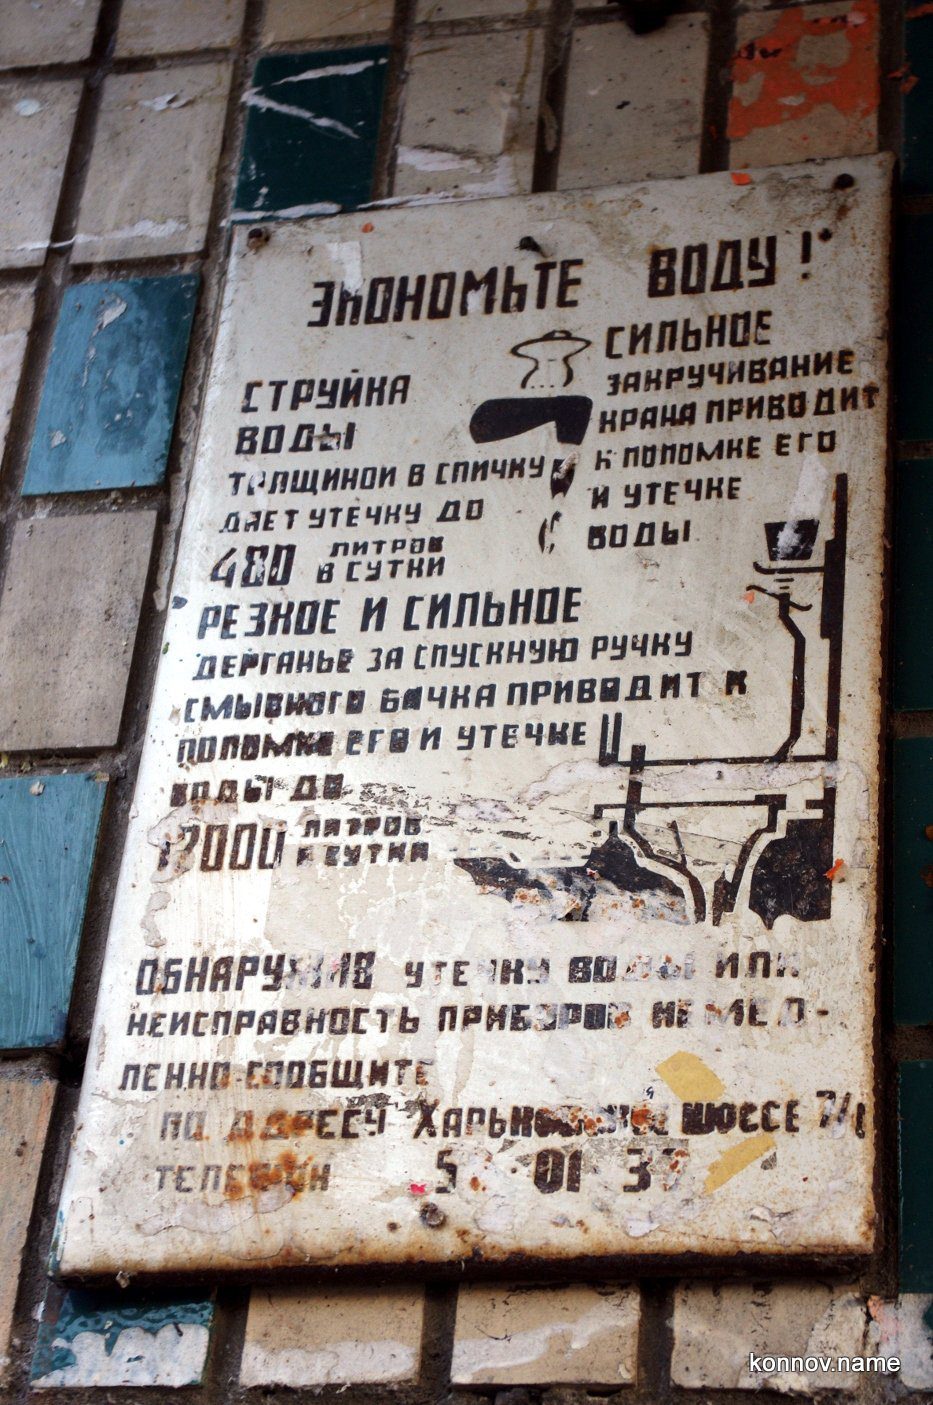 ЭКОНОМЬТЕ ВОДУ!
СТРУЙКА
ВОДЫ
ТОЛЩИНОЙ В СПИЧКУ
ДАЕТ УТЕЧКУ ДО
480 ЛИТРОВ
В СУТКИ
СИЛЬНОЕ
ЗАКРУЧИВАНИЕ
КРАНА ПРИВОДИТ
К ПОЛОМКЕ ЕГО
И УТЕЧКЕ
ВОДЫ
РЕЗКОЕ И СИЛЬНОЕ
ДЕРГАНЬЕ ЗА СПУСКНУЮ РУЧКУ
СМЫВНОГО БАЧКА ПРИВОДИТ К
ПОЛОМКЕ ЕГО И УТЕЧКЕ
ВОДЫ ДО
ЛИТРОВ
В СУТКИ
ОБНАРУЖИВ УТЕЧКУ ВОДЫ ИЛИ
НЕИСПРАВНОСТЬ ПРИБОРОВ НЕМЕД-
ЛЕННО СООБЩИТЕ
ПО АДРЕСУ ХАРЬКОВСКОЕ ШОССЕ
ТЕЛЕФОН 01
konnov.name